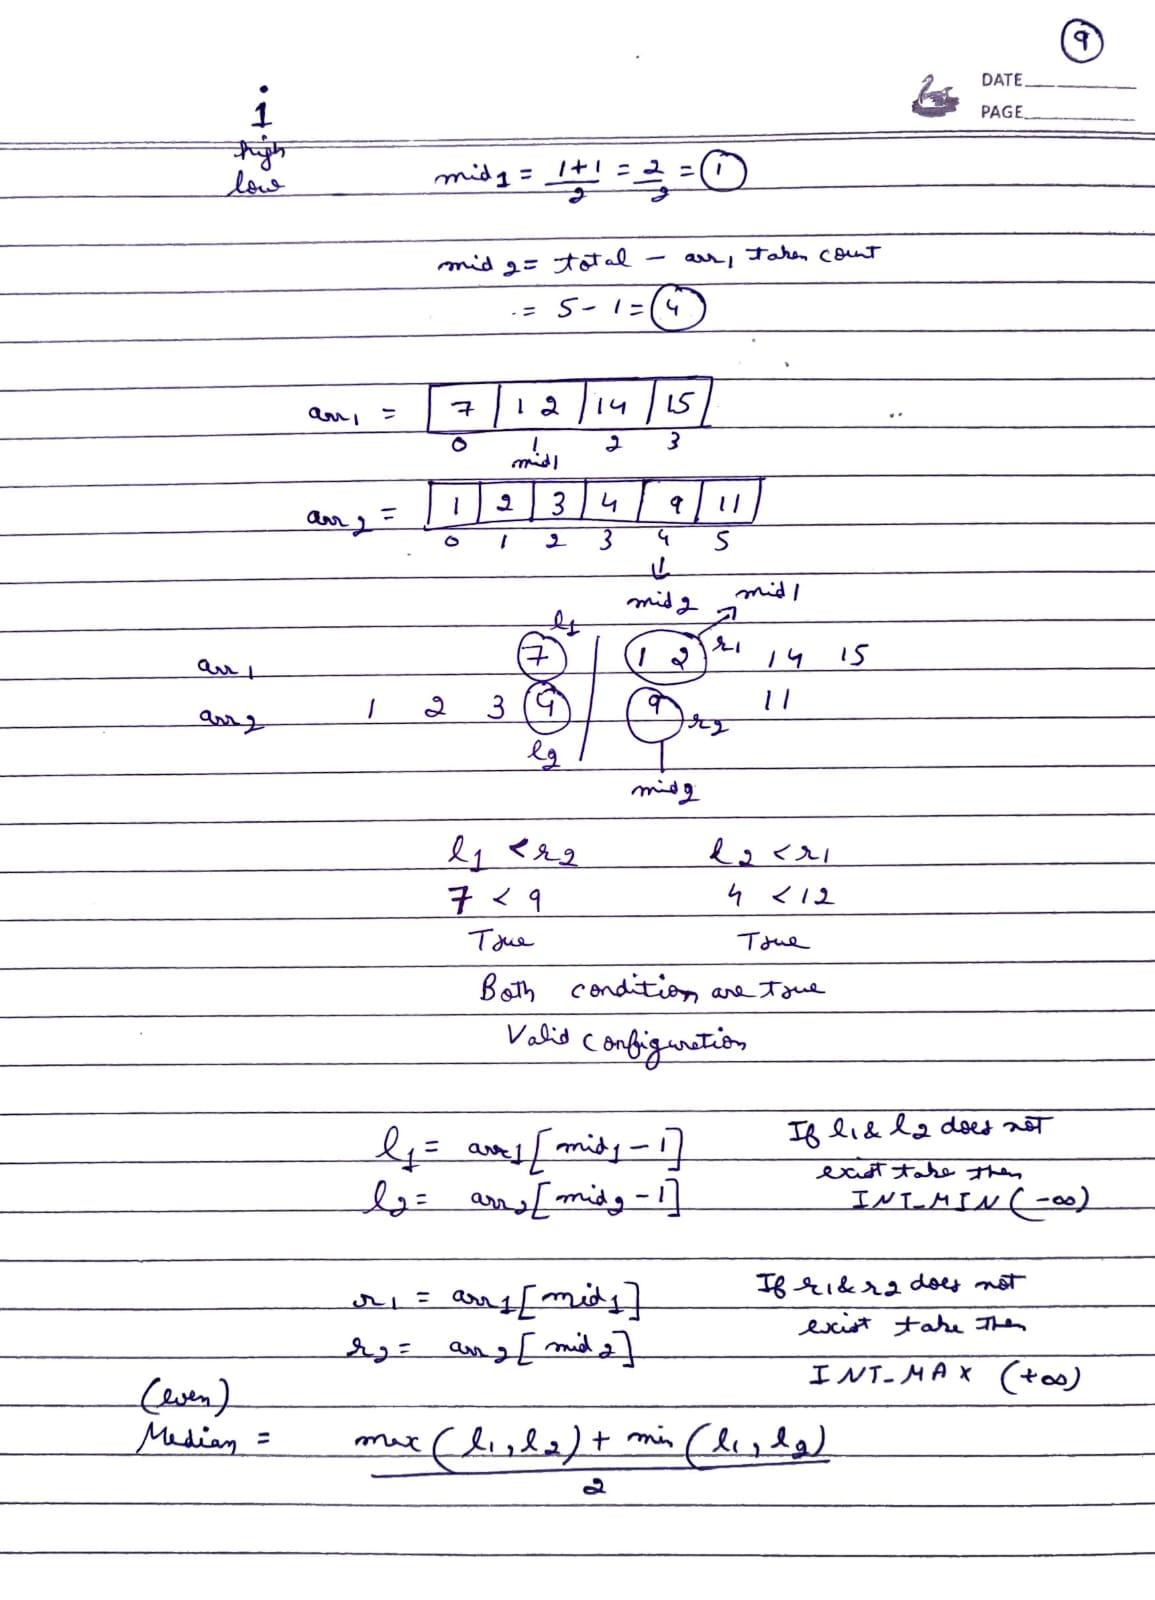 9
DATE
PAGE
1
high
low
mid1 = 1+1/2 = 2/2 = 1
mid2 = total - arr1 taken count
= 5 - 1 = 4
arr1 = 7 12 14 15
0 1 2 3
mid1
arr2 = 1 2 3 4 9 11
0 1 2 3 4 5
mid2 mid1
l1
arr1 7 12 r1 14 15
arr2 1 2 3 4 9 r2 11
l2
mid2
l1 < r2 l2 < r1
7 < 9 4 < 12
True True
Both condition are true
Valid configuration
l1 = arr1[mid1-1] If l1 & l2 does not
exist take then
l2 = arr2[mid2-1] INT_MIN (-∞)
r1 = arr1[mid1] If r1 & r2 does not
exist take then
r2 = arr2[mid2]
INT-MAX (+∞)
(even)
Median = max(l1, l2) + min(l1, l2)
2